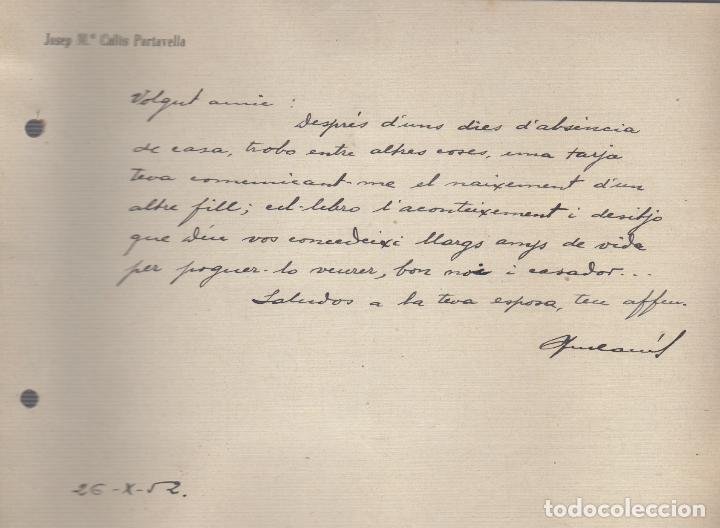 Josep M.ª Callís Portavella
Volgut amic:
Després d'uns dies d'absència
de casa, trobo entre altres coses, una tarja
teva comunicant-me el naixement d'un
altre fill; cel·lebro l'aconteixement i desitjo
que Déu vos concedeixi llargs anys de vida
per poguer-lo veurer, bon noi i casador...
Saludos a la teva esposa, teu affm.
26-X-52.
todocoleccion.net